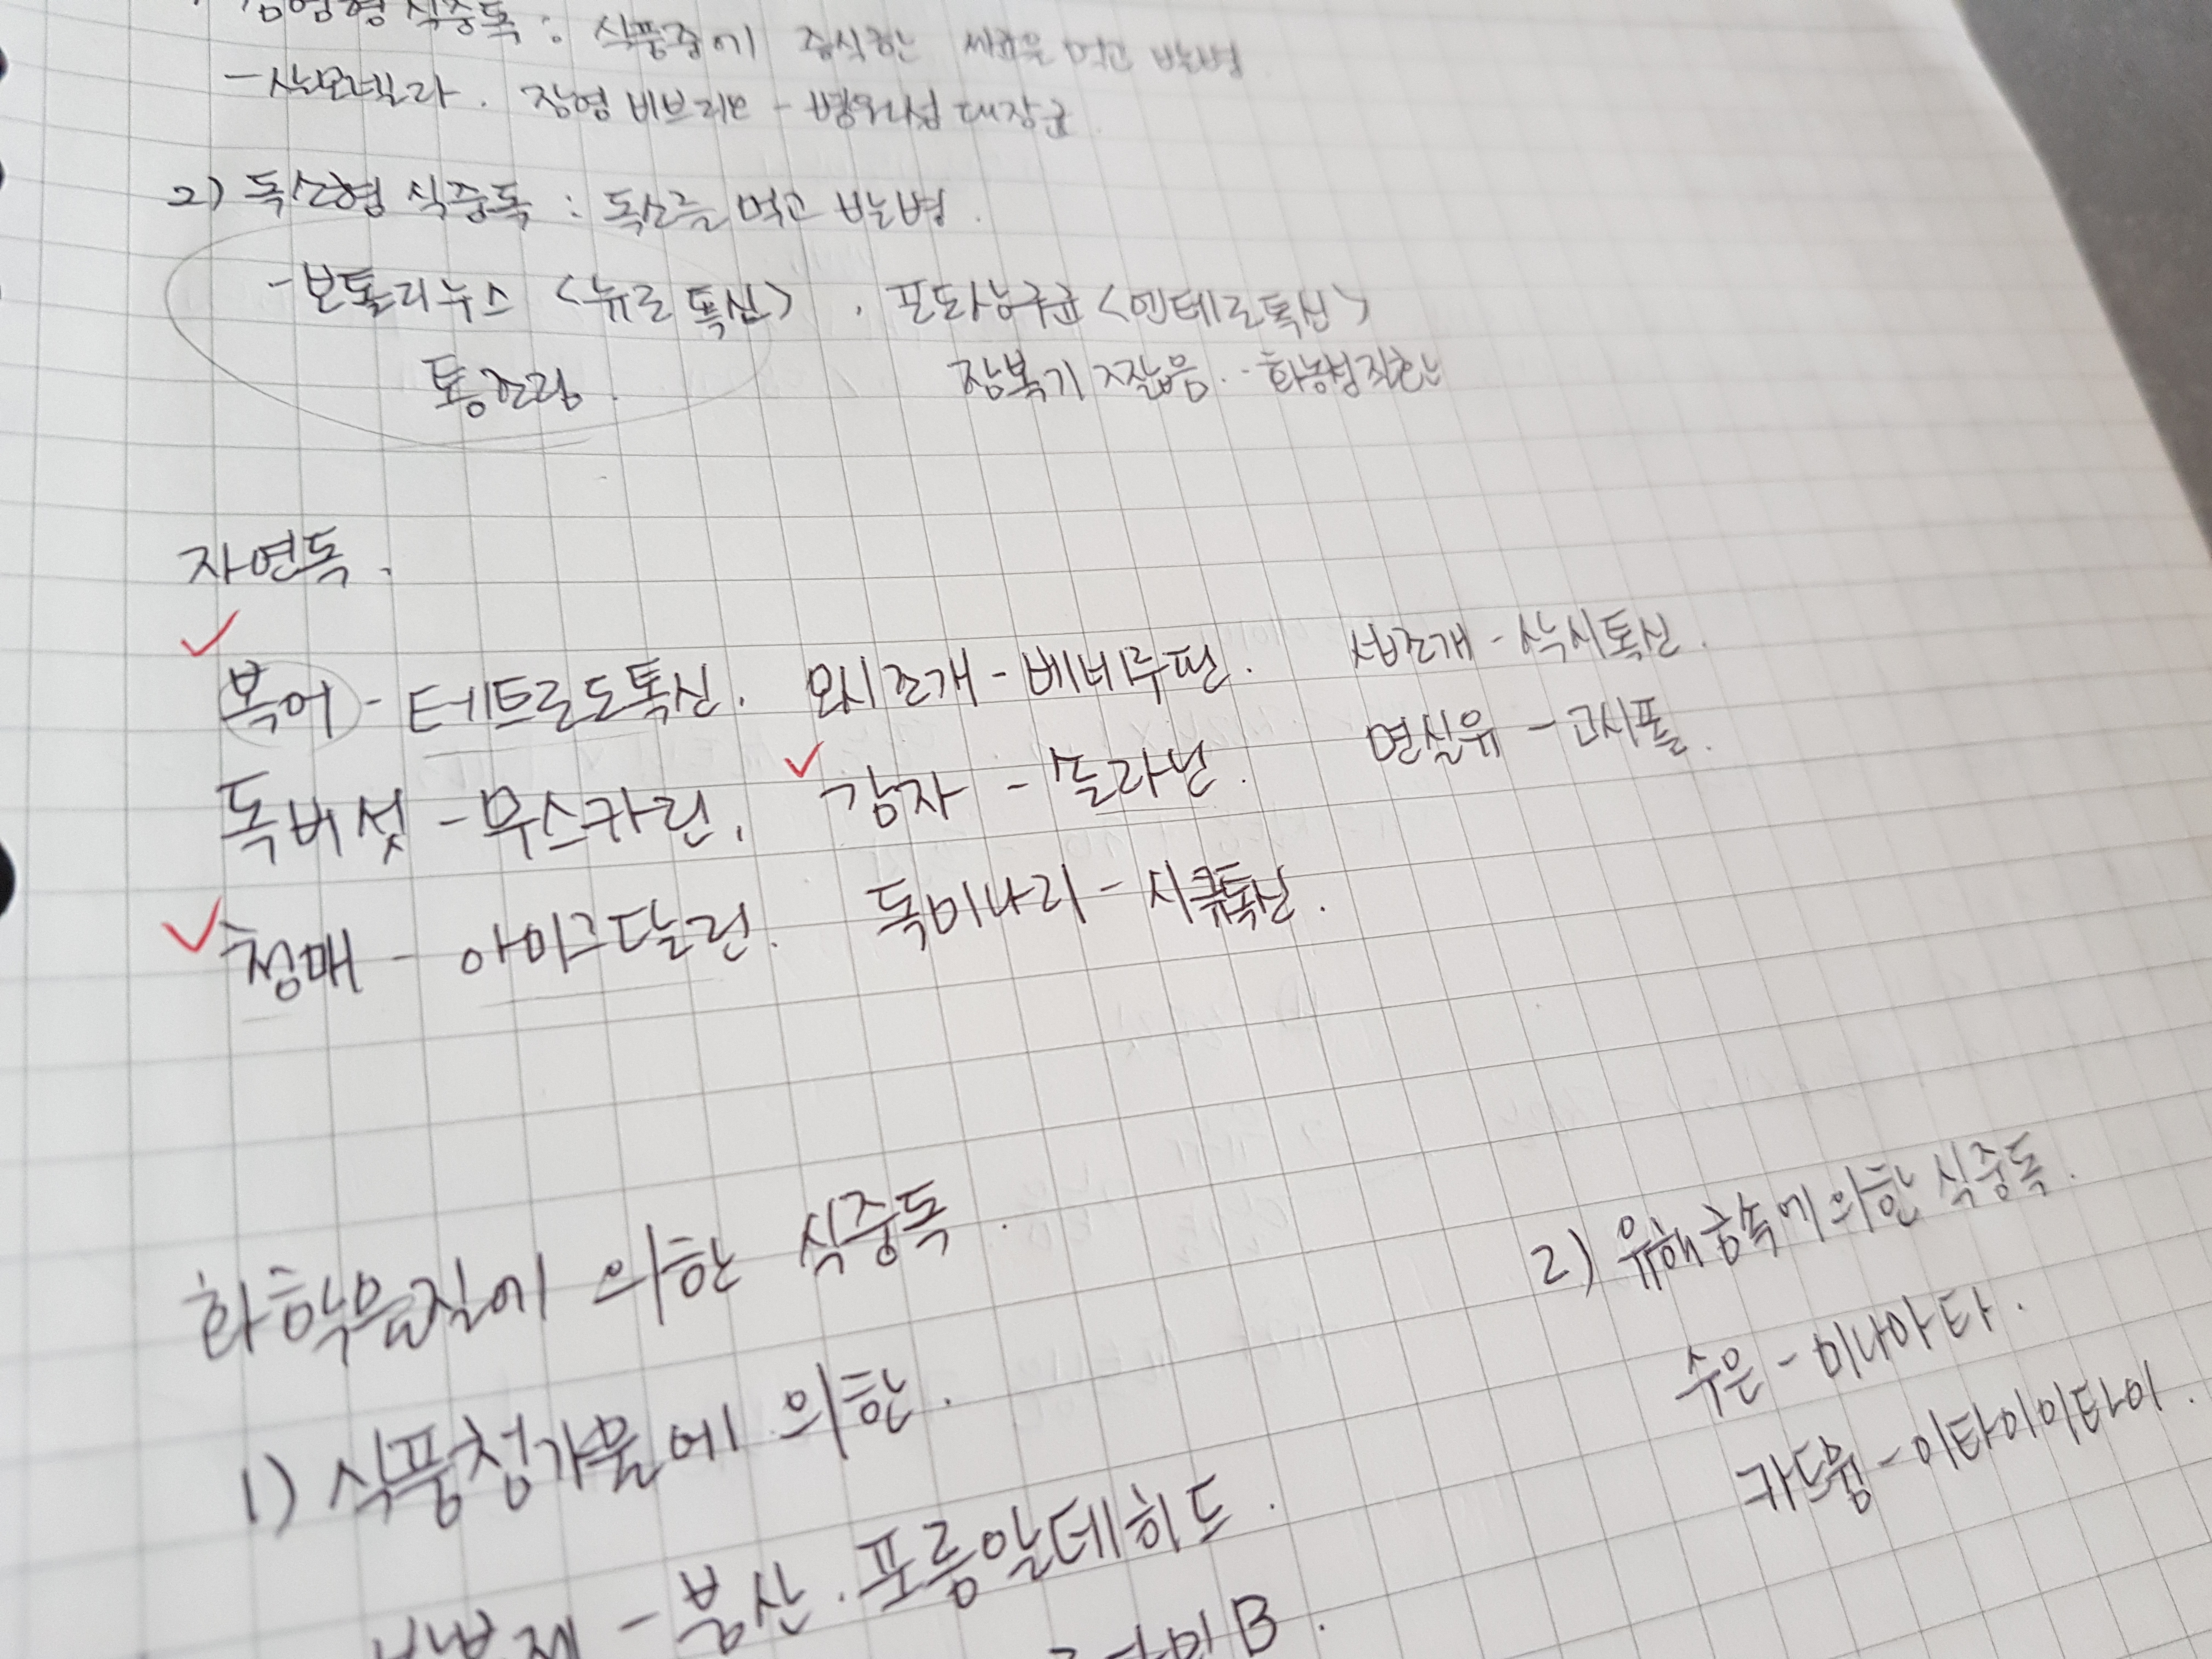 감염형 식중독 : 식품중에 증식한 세균을 먹고 발병
- 살모넬라. 장염비브리오 - 병원성 대장균
2) 독소형 식중독 : 독소를 먹고 발병.
- 보툴리누스 <뉴로톡신>, 포도상구균<엔테로톡신>
통조림. 잠복기 짧음. - 화농성질환
자연독.
복어 - 테트로도톡신. 모시조개 - 베네루핀. 섭조개 - 삭시톡신.
독버섯 - 무스카린. 감자 - 솔라닌. 면실유 - 고시폴.
청매 - 아미그달린. 독미나리 - 시큐톡신.
화학물질에 의한 식중독.
1) 식품첨가물에 의한.
- 붕산. 포름알데히드.
B.
2) 유해금속에 의한 식중독.
수은 - 미나마타.
카드뮴 - 이타이이타이.